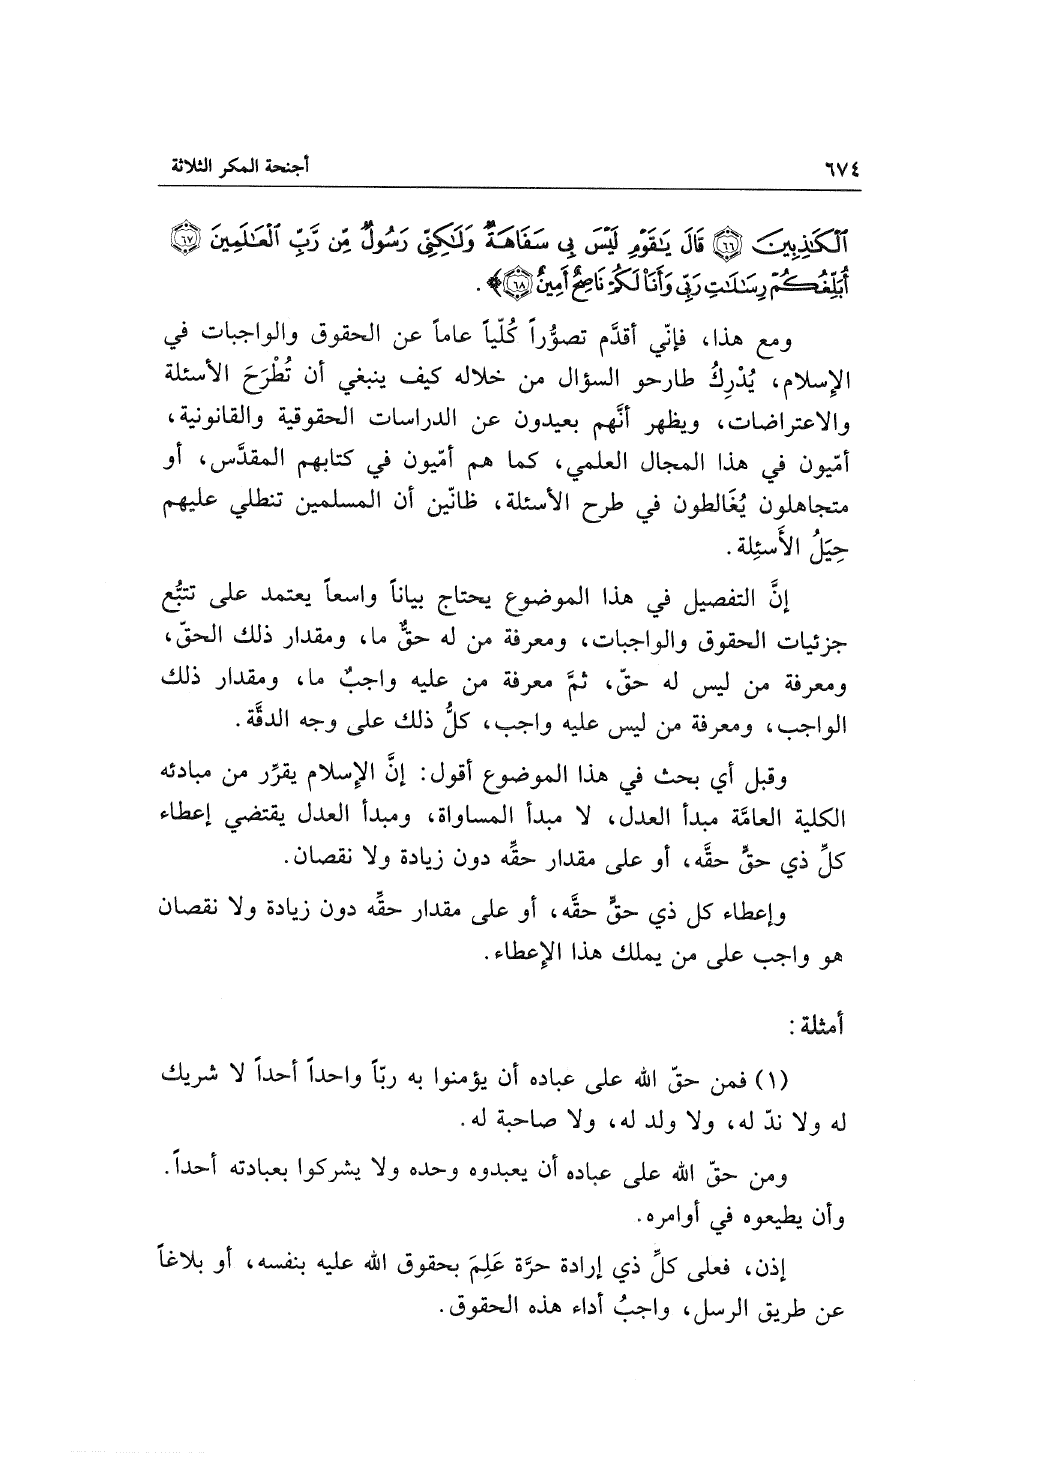 ٦٧٤ أجنحة المكر الثلاثة
ٱلۡكَٰذِبِينَ ٦٦ قَالَ يَٰقَوۡمِ لَيۡسَ بِي سَفَاهَةٞ وَلَٰكِنِّي رَسُولٞ مِّن رَّبِّ ٱلۡعَٰلَمِينَ ٦٧
أُبَلِّغُكُمۡ رِسَٰلَٰتِ رَبِّي وَأَنَا۠ لَكُمۡ نَاصِحٌ أَمِينٌ ٦٨﴾.
ومع هذا، فإنّي أقدَّم تصوُّراً كُلّياً عاماً عن الحقوق والواجبات في
الإسلام، يُدْرِكُ طارحو السؤال من خلاله كيف ينبغي أن تُطْرَحَ الأسئلة
والاعتراضات، ويظهر أنَّهم بعيدون عن الدراسات الحقوقية والقانونية،
أمّيون في هذا المجال العلمي، كما هم أمّيون في كتابهم المقدَّس، أو
متجاهلون يُغَالطون في طرح الأسئلة، ظانّين أن المسلمين تنطلي عليهم
حِيَلُ الأَسئِلة.
إنَّ التفصيل في هذا الموضوع يحتاج بياناً واسعاً يعتمد على تتبُّع
جزئيات الحقوق والواجبات، ومعرفة من له حقٌّ ما، ومقدار ذلك الحقّ،
ومعرفة من ليس له حقّ، ثمَّ معرفة من عليه واجبٌ ما، ومقدار ذلك
الواجب، ومعرفة من ليس عليه واجب، كلُّ ذلك على وجه الدقَّة.
وقبل أي بحث في هذا الموضوع أقول: إنَّ الإسلام يقرِّر من مبادئه
الكلية العامَّة مبدأ العدل، لا مبدأ المساواة، ومبدأ العدل يقتضي إعطاء
كلِّ ذي حقٍّ حقَّه، أو على مقدار حقِّه دون زيادة ولا نقصان.
وإعطاء كل ذي حقٍّ حقَّه، أو على مقدار حقِّه دون زيادة ولا نقصان
هو واجب على من يملك هذا الإعطاء.
أمثلة:
(١) فمن حقّ الله على عباده أن يؤمنوا به ربّاً واحداً أحداً لا شريك
له ولا ندّ له، ولا ولد له، ولا صاحبة له.
ومن حقّ الله على عباده أن يعبدوه وحده ولا يشركوا بعبادته أحداً.
وأن يطيعوه في أوامره.
إذن، فعلى كلِّ ذي إرادة حرَّة عَلِمَ بحقوق الله عليه بنفسه، أو بلاغاً
عن طريق الرسل، واجبُ أداء هذه الحقوق.